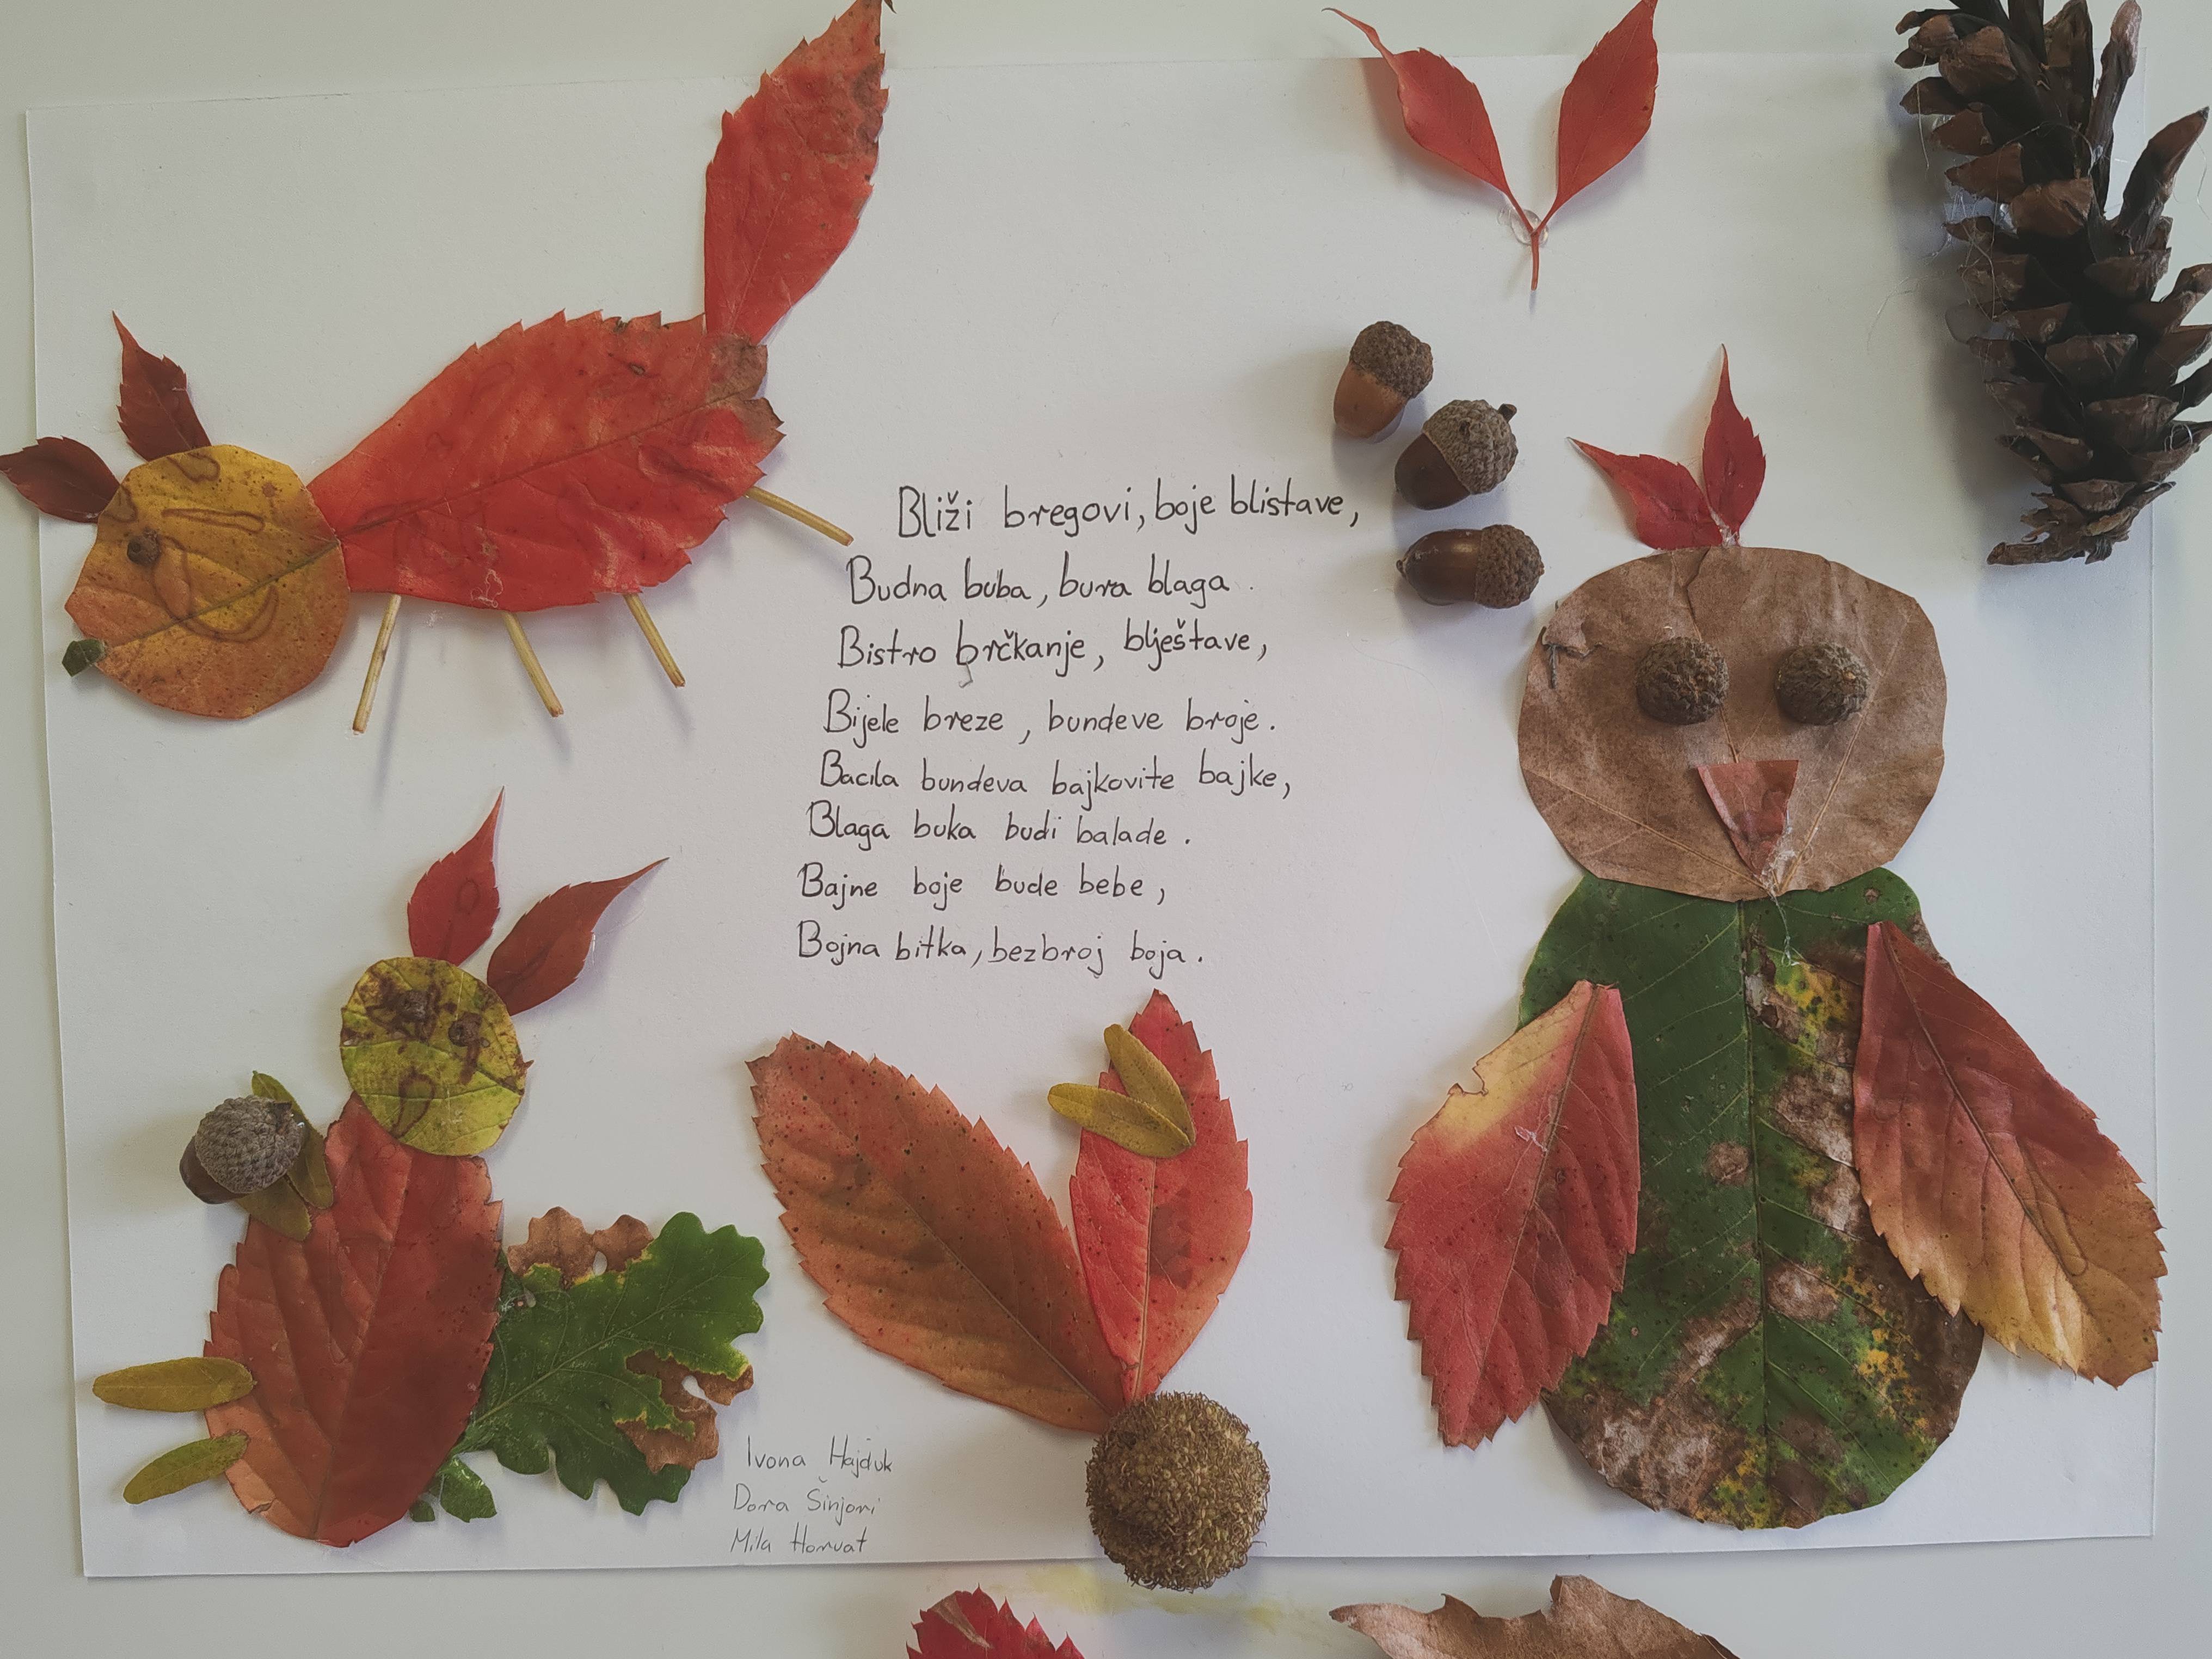 Bliži bregovi, boje blistave,
Budna buba, bura blaga.
Bistro brčkanje, blještave,
Bijele breze, bundeve broje.
Bacila bundeva bajkovite bajke,
Blaga buka budi balade.
Bajne boje bude bebe,
Bojna bitka, bezbroj boja.
Ivona Hajduk
Dora Šinjori
Mila Horvat